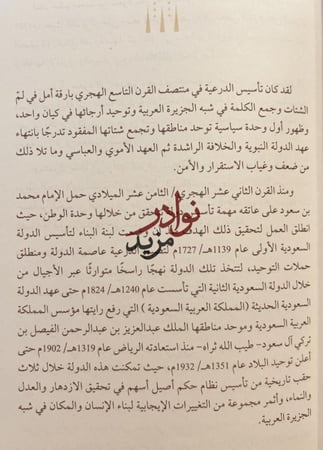 لقد كان تأسيس الدرعية في منتصف القرن التاسع الهجري بارقة أمل في لمّ
الشتات وجمع الكلمة في شبه الجزيرة العربية وتوحيد أرجائها في كيان واحد،
وظهور أول وحدة سياسية توحد مناطقها وتجمع شتاتها المفقود تدرجًا بانتهاء
عهد الدولة النبوية والخلافة الراشدة ثم العهد الأموي والعباسي وما تلا ذلك
من ضعف وغياب الاستقرار والأمن.
ومنذ القرن الثاني عشر الهجري/ الثامن عشر الميلادي حمل الإمام محمد
بن سعود على عاتقه مهمة تأ تحقق من خلالها وحدة الوطن، حيث
انطلق العمل لتحقيق ذلك الهد ت لبنة البناء لتأسيس الدولة
السعودية الأولى عام 1139هـ/ 1727م لت الدرعية عاصمة الدولة ومنطلق
حملات التوحيد، لتتخذ تلك الدولة نهجًا راسخًا متوارثًا عبر الأجيال من
خلال الدولة السعودية الثانية التي تأسست عام 1240هـ/1824م حتى عهد الدولة
السعودية الحديثة (المملكة العربية السعودية) التي رفع رايتها مؤسس المملكة
العربية السعودية وموحد مناطقها الملك عبدالعزيز بن عبدالرحمن الفيصل بن
تركي آل سعود- طيب الله ثراه- منذ استعادته الرياض عام 1319هـ/ 1902م حتى
أعلن توحيد البلاد عام 1351هـ/ 1932م، حيث تمكنت هذه الدولة خلال ثلاث
حقب تاريخية من تأسيس نظام حكم أصيل أسهم في تحقيق الازدهار والعدل
والنماء، وأثمر مجموعة من التغييرات الإيجابية لبناء الإنسان والمكان في شبه
الجزيرة العربية.
نوادر
مزيد